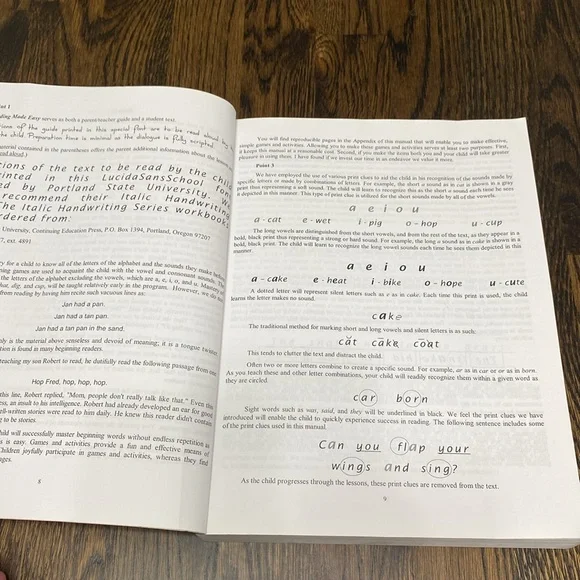 int 1
ding Made Easy serves as both a parent/teacher guide and a student text.
tions of the guide printed in this special font are to be read aloud by
the child. Preparation time is minimal as the dialogue is fully scripted.
material contained in the parentheses offers the parent additional information about the lesson
read aloud.)
tions of the text to be read by the child
rinted in this LucidaSansSchool fon
ed by Portland State University. We
recommend their Italic Handwriting
The Italic Handwriting Series workbooks
rdered from:
University, Continuing Education Press, P.O. Box 1394, Portland, Oregon 97207
7, ext. 4891
ry for a child to know all of the letters of the alphabet and the sounds they make before
ning games are used to acquaint the child with the vowel and consonant sounds. The
the letters of the alphabet excluding the vowels, which are a, e, i, o, and u. Mastery of
that, dig, and cup, will be taught relatively early in the program. However, we do not
from reading by having him recite such vacuous lines as:
Jan had a pan.
Jan had a tan pan.
Jan had a tan pan in the sand.
only is the material above senseless and devoid of meaning, it is a tongue twister.
tion is found in many beginning readers.
teaching my son Robert to read, he dutifully read the following passage from one
Hop Fred, hop, hop, hop.
this line, Robert replied, "Mom, people don't really talk like that." Even this
ess, an insult to his intelligence. Robert had already developed an ear for good
ell-written stories were read to him daily. He knew this reader didn't contain
g to be stories.
child will successfully master beginning words without endless repetition as
s is easy. Games and activities provide a fun and effective means of
Children joyfully participate in games and activities, whereas they find
ages.
8
You will find reproducible pages in the Appendix of this manual that will enable you to make effective,
simple games and activities. Allowing you to make these games and activities serves at least two purposes. First,
it keeps this manual at a reasonable cost. Second, if you make the items both you and your child will take greater
pleasure in using them. I have found if we invest our time in an endeavor we value it more.
Point 3
We have employed the use of various print clues to aid the child in his recognition of the sounds made by
specific letters or made by combinations of letters. For example, the short a sound as in cat is shown in a gray
print thus representing a soft sound. The child will learn to recognize that as the short a sound each time he sees
it depicted in this manner. This type of print clue is utilized for the short sounds made by all of the vowels.
a e i o u
a - cat e - wet i - pig o - hop u - cup
The long vowels are distinguished from the short vowels, and from the rest of the text, as they appear in a
bold, black print thus representing a strong or hard sound. For example, the long a sound as in cake is shown in a
bold, black print. The child will learn to recognize the long vowel sounds each time he sees them depicted in this
manner.
a e i o u
a - cake e - heat i - bike o - hope u - cute
A dotted letter will represent silent letters such as e as in cake. Each time this print is used, the child
learns the letter makes no sound.
cake
The traditional method for marking short and long vowels and silent letters is as such:
căt cāke̸ cōa̸t
This tends to clutter the text and distract the child.
Often two or more letters combine to create a specific sound. For example, ar as in car or or as in born.
As you teach these and other letter combinations, your child will readily recognize them within a given word as
they are circled.
car born
Sight words such as was, said, and they will be underlined in black. We feel the print clues we have
introduced will enable the child to quickly experience success in reading. The following sentence includes some
of the print clues used in this manual.
Can you flap your
wings and sing?
As the child progresses through the lessons, these print clues are removed from the text.
9